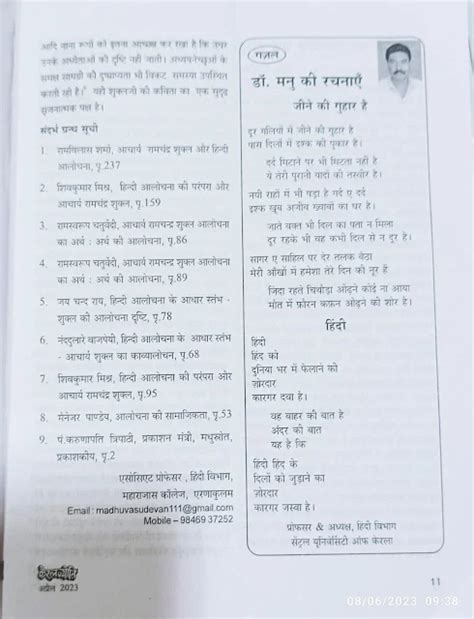 आदि नाना रूपों को इतना आच्छन्न कर रखा है कि उधर
उनके अध्येताओं की दृष्टि नहीं जाती। अध्ययनेच्छुओं के
समक्ष सामग्री की दुष्प्राप्यता भी विकट समस्या उपस्थित
करती रही है।" यही शुक्लजी की कविता का एक सुदृढ़
सृजनात्मक पक्ष है।
संदर्भ ग्रन्थ सूची
1. रामविलास शर्मा, आचार्य रामचन्द्र शुक्ल और हिन्दी
आलोचना, पृ.237
2. शिवकुमार मिश्र, हिन्दी आलोचना की परंपरा और
आचार्य रामचन्द्र शुक्ल, पृ.159
3. रामस्वरूप चतुर्वेदी, आचार्य रामचन्द्र शुक्ल आलोचना
का अर्थ : अर्थ की आलोचना, पृ.86
4. रामस्वरूप चतुर्वेदी, आचार्य रामचन्द्र शुक्ल आलोचना
का अर्थ : अर्थ की आलोचना, पृ.89
5. जय चन्द राय, हिन्दी आलोचना के आधार स्तंभ -
शुक्ल की आलोचना दृष्टि, पृ.78
6. नंददुलारे वाजपेयी, हिन्दी आलोचना के आधार स्तंभ
- आचार्य शुक्ल का काव्यालोचन, पृ.68
7. शिवकुमार मिश्र, हिन्दी आलोचना की परंपरा और
आचार्य रामचंद्र शुक्ल, पृ.95
8. मेनेजर पाण्डेय, आलोचना की सामाजिकता, पृ.53
9. पं.करुणापति त्रिपाठी, प्रकाशन मंत्री, मधुस्रोत,
प्रकाशकीय, पृ.2
एसोसिएट प्रोफेसर , हिंदी विभाग,
महाराजास कॉलेज, एरणाकुलम
Email : madhuvasudevan111@gmail.com
Mobile – 98469 37252
केरलज्योति
अप्रैल 2023
ग़ज़ल
डॉ. मनु की रचनाएँ
जीने की गुहार है
दूर गलियों में जीने की गुहार है
पास दिलों में इश्क की पुकार है।
दर्द मिटाने पर भी मिटता नहीं है
ये तेरी पुरानी यादों की तस्वीर है।
नयी राहों में भी पड़ा है गर्द ए दर्द
इश्क खूब अजीब ख्वाबों का घर है।
जाते वक्त भी दिल का पता न मिला
दूर रहके भी वह कभी दिल से न दूर है।
सागर ए साहिल पर देर तलक बैठा
मेरी आँखों में हमेशा तेरे दिल की नूर है
जिंदा रहते चिथड़ा ओढ़ने कोई ना आया
मौत में फ़ौरन कफ़न ओढ़ने की शोर है।
हिंदी
हिंदी
हिंद को
दुनिया भर में फैलाने की
ज़ोरदार
कारगर दवा है।
यह बाहर की बात है
अंदर की बात
यह है कि
हिंदी हिंद के
दिलों को जुड़ाने का
ज़ोरदार
कारगर जरवा है।
प्रोफसर & अध्यक्ष, हिंदी विभाग
सेंट्रल यूनिवर्सिटी ऑफ केरला
11
08/06/2023 09:38